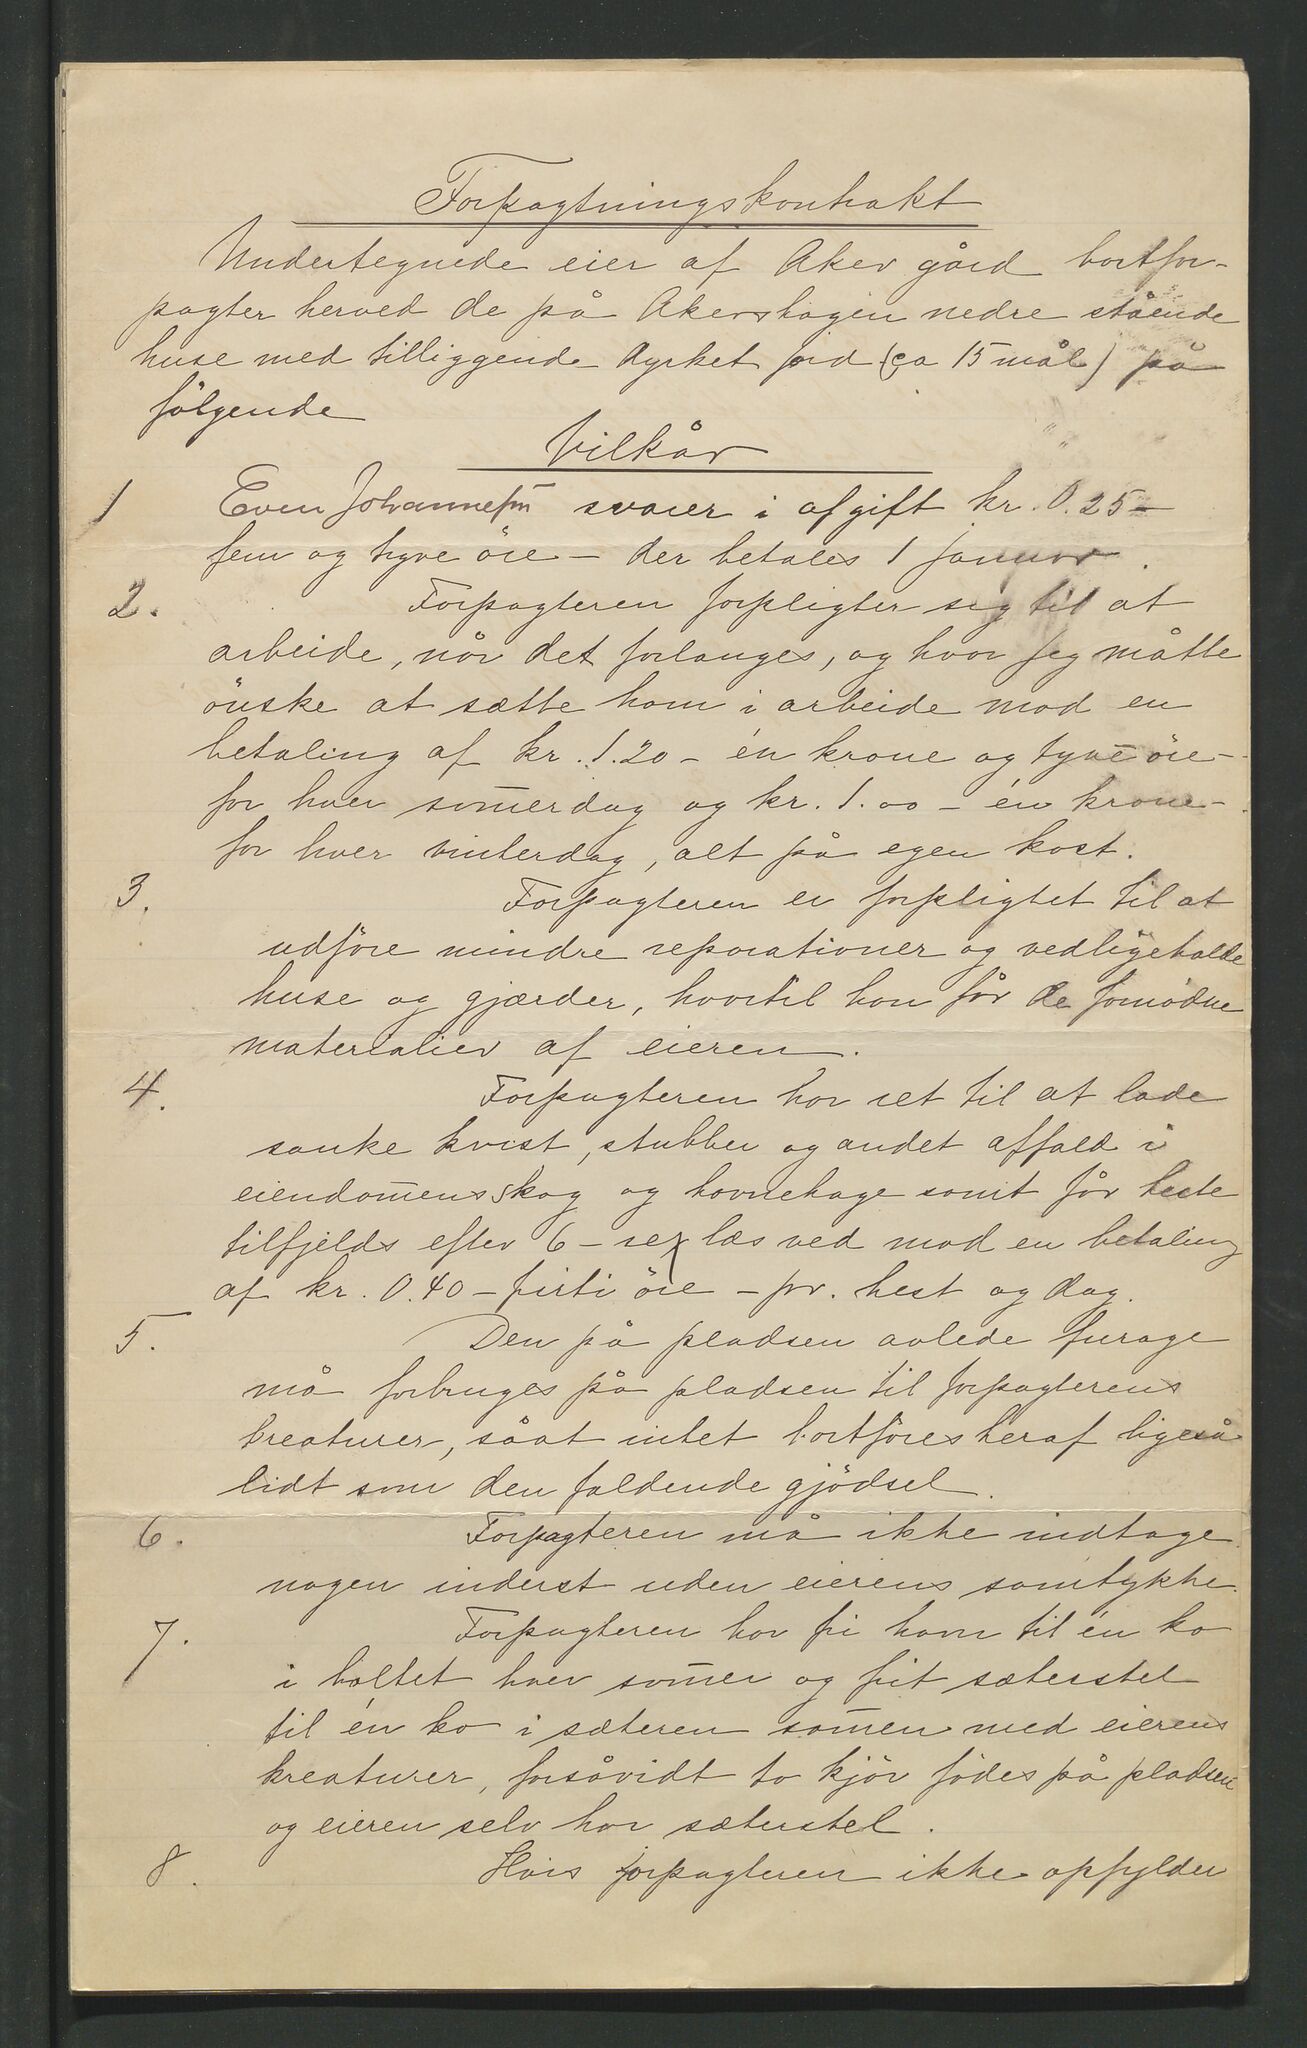 Forpagtningskontrakt
Undertegnede eier af Aker gård bortfor-
pagter herved de på Akershagen nedre stående
huse med tilliggende dyrket jord (ca 15 mål) på
følgende
Vilkår
1 Even Johannesen svarer i afgift kr. 0.25 –
fem og tyve öre – der betales 1 januar.
2. Forpagteren forpligter sig til at
arbeide, når det forlanges, og hvor jeg måtte
önske at sætte ham i arbeide mod en
betaling af kr. 1.20 – én krone og tyve öre –
for hver som̅erdag og kr. 1.00 – én krone –
for hver vinterdag, alt på egen kost.
3. Forpagteren er forpligtet til at
udföre mindre reparationer og vedligeholde
huse og gjærder, hvortil han får de fornödne
materialier af eieren.
4. Forpagteren har ret til at lade
sanke kvist, stubber og andet affald i
eiendom̅ens skog og havnehage samt får heste
tilfjelds efter 6 – sex læs ved mod en betaling
af kr. 0.40 – firti öre – pr. hest og dag.
5. Den på pladsen avlede furage
må forbruges på pladsen til forpagterens
kreaturer, såat intet bortföres heraf ligeså
lidt som den faldende gjödsel.
6. Forpagteren må ikke indtage
nogen inderst uden eierens samtykke.
7. Forpagteren har fri havn til én ko
i holtet hver som̅er og frit sæterstel
til én ko i sæteren sam̅en med eierens
kreaturer, forsåvidt to kjör födes på pladsen
og eieren selv har sæterstel.
8. Hvis forpagteren ikke opfylder